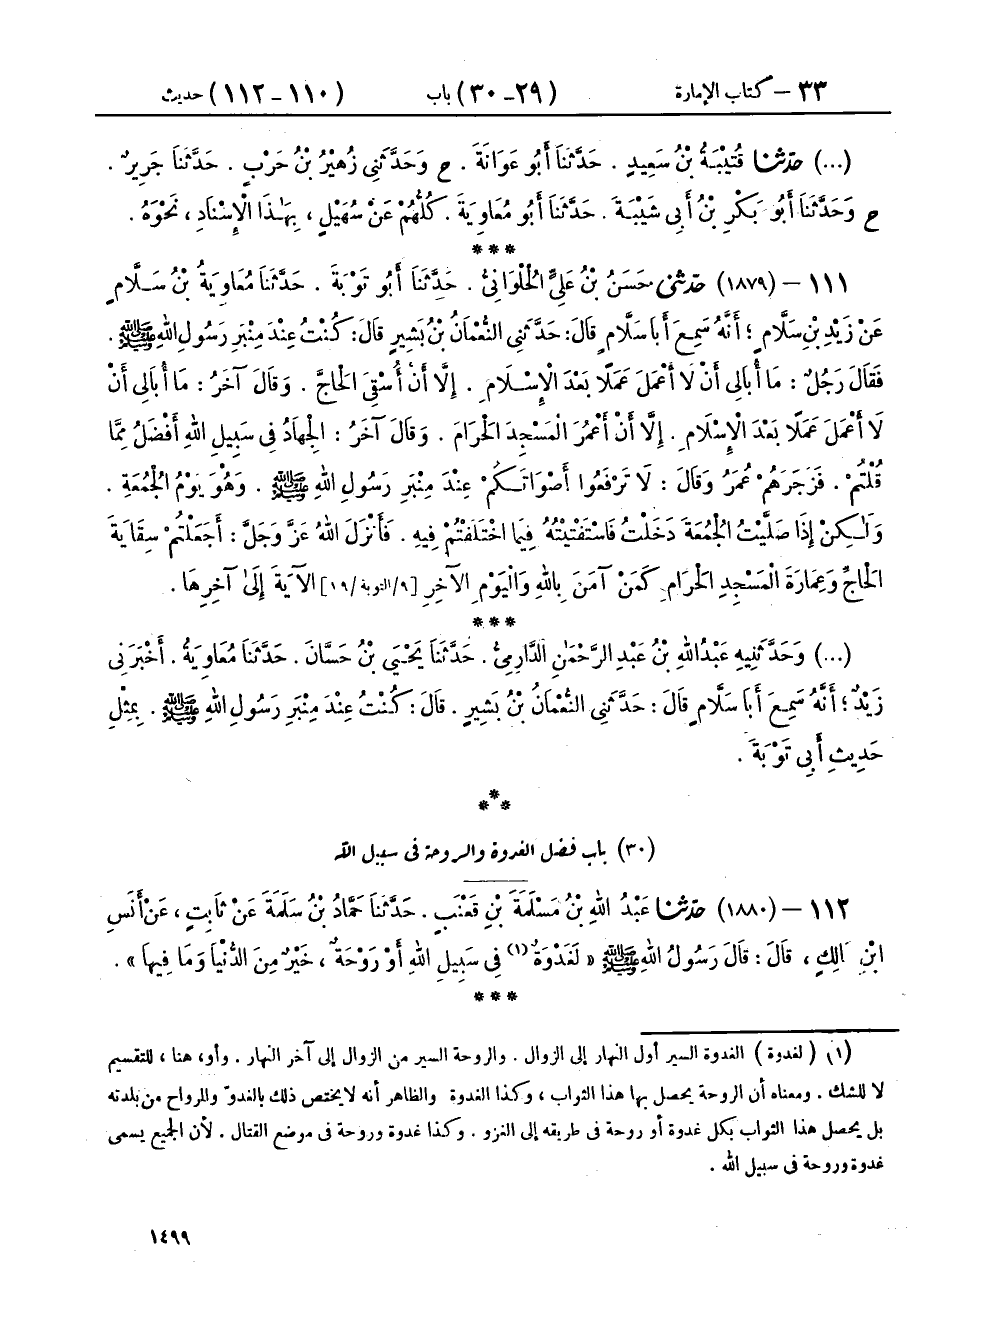 ٣٣ – كتاب الإمارة (٢٩-٣٠) باب (١١٠-١١٢) حديث
(...) حَدَّثَنَا قُتَيْبَةُ بْنُ سَعِيدٍ . حَدَّثَنَا أَبُو عَوَانَةَ . ح وَحَدَّثَنِي زُهَيْرُ بْنُ حَرْبٍ . حَدَّثَنَا جَرِيرٌ .
ح وَحَدَّثَنَا أَبُو بَكْرِ بْنُ أَبِي شَيْبَةَ . حَدَّثَنَا أَبُو مُعَاوِيَةَ . كُلُّهُمْ عَنْ سُهَيْلٍ ، بِهَـٰذَا الْإِسْنَادِ ، نَحْوَهُ .
***
١١١ – (١٨٧٩) حَدَّثَنِي حَسَنُ بْنُ عَلِيٍّ الْحُلْوَانِيُّ . حَدَّثَنَا أَبُو تَوْبَةَ . حَدَّثَنَا مُعَاوِيَةُ بْنُ سَلَّامٍ
عَنْ زَيْدِ بْنِ سَلَّامٍ ؛ أَنَّهُ سَمِعَ أَبَا سَلَّامٍ قَالَ : حَدَّثَنِي النُّعْمَانُ بْنُ بَشِيرٍ قَالَ : كُنْتُ عِنْدَ مِنْبَرِ رَسُولِ اللهِ ﷺ .
فَقَالَ رَجُلٌ : مَا أُبَالِي أَنْ لَا أَعْمَلَ عَمَلًا بَعْدَ الْإِسْلَامِ . إِلَّا أَنْ أُسْقِيَ الْحَاجَّ . وَقَالَ آخَرُ : مَا أُبَالِي أَنْ
لَا أَعْمَلَ عَمَلًا بَعْدَ الْإِسْلَامِ . إِلَّا أَنْ أَعْمُرَ الْمَسْجِدَ الْحَرَامَ . وَقَالَ آخَرُ : الْجِهَادُ فِي سَبِيلِ اللهِ أَفْضَلُ مِمَّا
قُلْتُمْ . فَزَجَرَهُمْ عُمَرُ وَقَالَ : لَا تَرْفَعُوا أَصْوَاتَكُمْ عِنْدَ مِنْبَرِ رَسُولِ اللهِ ﷺ . وَهُوَ يَوْمُ الْجُمُعَةِ .
وَلَـٰكِنْ إِذَا صَلَّيْتُ الْجُمُعَةَ دَخَلْتُ فَاسْتَفْتَيْتُهُ فِيمَا اخْتَلَفْتُمْ فِيهِ . فَأَنْزَلَ اللهُ عَزَّ وَجَلَّ : أَجَعَلْتُمْ سِقَايَةَ
الْحَاجِّ وَعِمَارَةَ الْمَسْجِدِ الْحَرَامِ كَمَنْ آمَنَ بِاللهِ وَالْيَوْمِ الْآخِرِ [٩/التوبة/١٩] الْآيَةَ إِلَىٰ آخِرِهَا .
***
(...) وَحَدَّثَنِيهِ عَبْدُ اللهِ بْنُ عَبْدِ الرَّحْمَـٰنِ الدَّارِمِيُّ . حَدَّثَنَا يَحْيَى بْنُ حَسَّانَ . حَدَّثَنَا مُعَاوِيَةُ . أَخْبَرَنِي
زَيْدٌ ؛ أَنَّهُ سَمِعَ أَبَا سَلَّامٍ قَالَ : حَدَّثَنِي النُّعْمَانُ بْنُ بَشِيرٍ . قَالَ : كُنْتُ عِنْدَ مِنْبَرِ رَسُولِ اللهِ ﷺ . بِمِثْلِ
حَدِيثِ أَبِي تَوْبَةَ .
***
(٣٠) باب فضل الغدوة والروحة في سبيل الله
١١٢ – (١٨٨٠) حَدَّثَنَا عَبْدُ اللهِ بْنُ مَسْلَمَةَ بْنِ قَعْنَبٍ . حَدَّثَنَا حَمَّادُ بْنُ سَلَمَةَ عَنْ ثَابِتٍ ، عَنْ أَنَسِ
ابْنِ مَالِكٍ ، قَالَ : قَالَ رَسُولُ اللهِ ﷺ « لَغَدْوَةٌ (١) فِي سَبِيلِ اللهِ أَوْ رَوْحَةٌ ، خَيْرٌ مِنَ الدُّنْيَا وَمَا فِيهَا » .
***
(١) (لغدوة) الغدوة السير أول النهار إلى الزوال . والروحة السير من الزوال إلى آخر النهار . وأو، هنا ، للتقسيم
لا للشك . ومعناه أن الروحة يحصل بها هذا الثواب ، وكذا الغدوة والظاهر أنه لايختص ذلك بالغدوّ والرواح من بلدته
بل يحصل هذا الثواب بكل غدوة أو روحة في طريقه إلى الغزو . وكذا غدوة وروحة في موضع القتال . لأن الجميع يسمى
غدوة وروحة في سبيل الله .
١٤٩٩